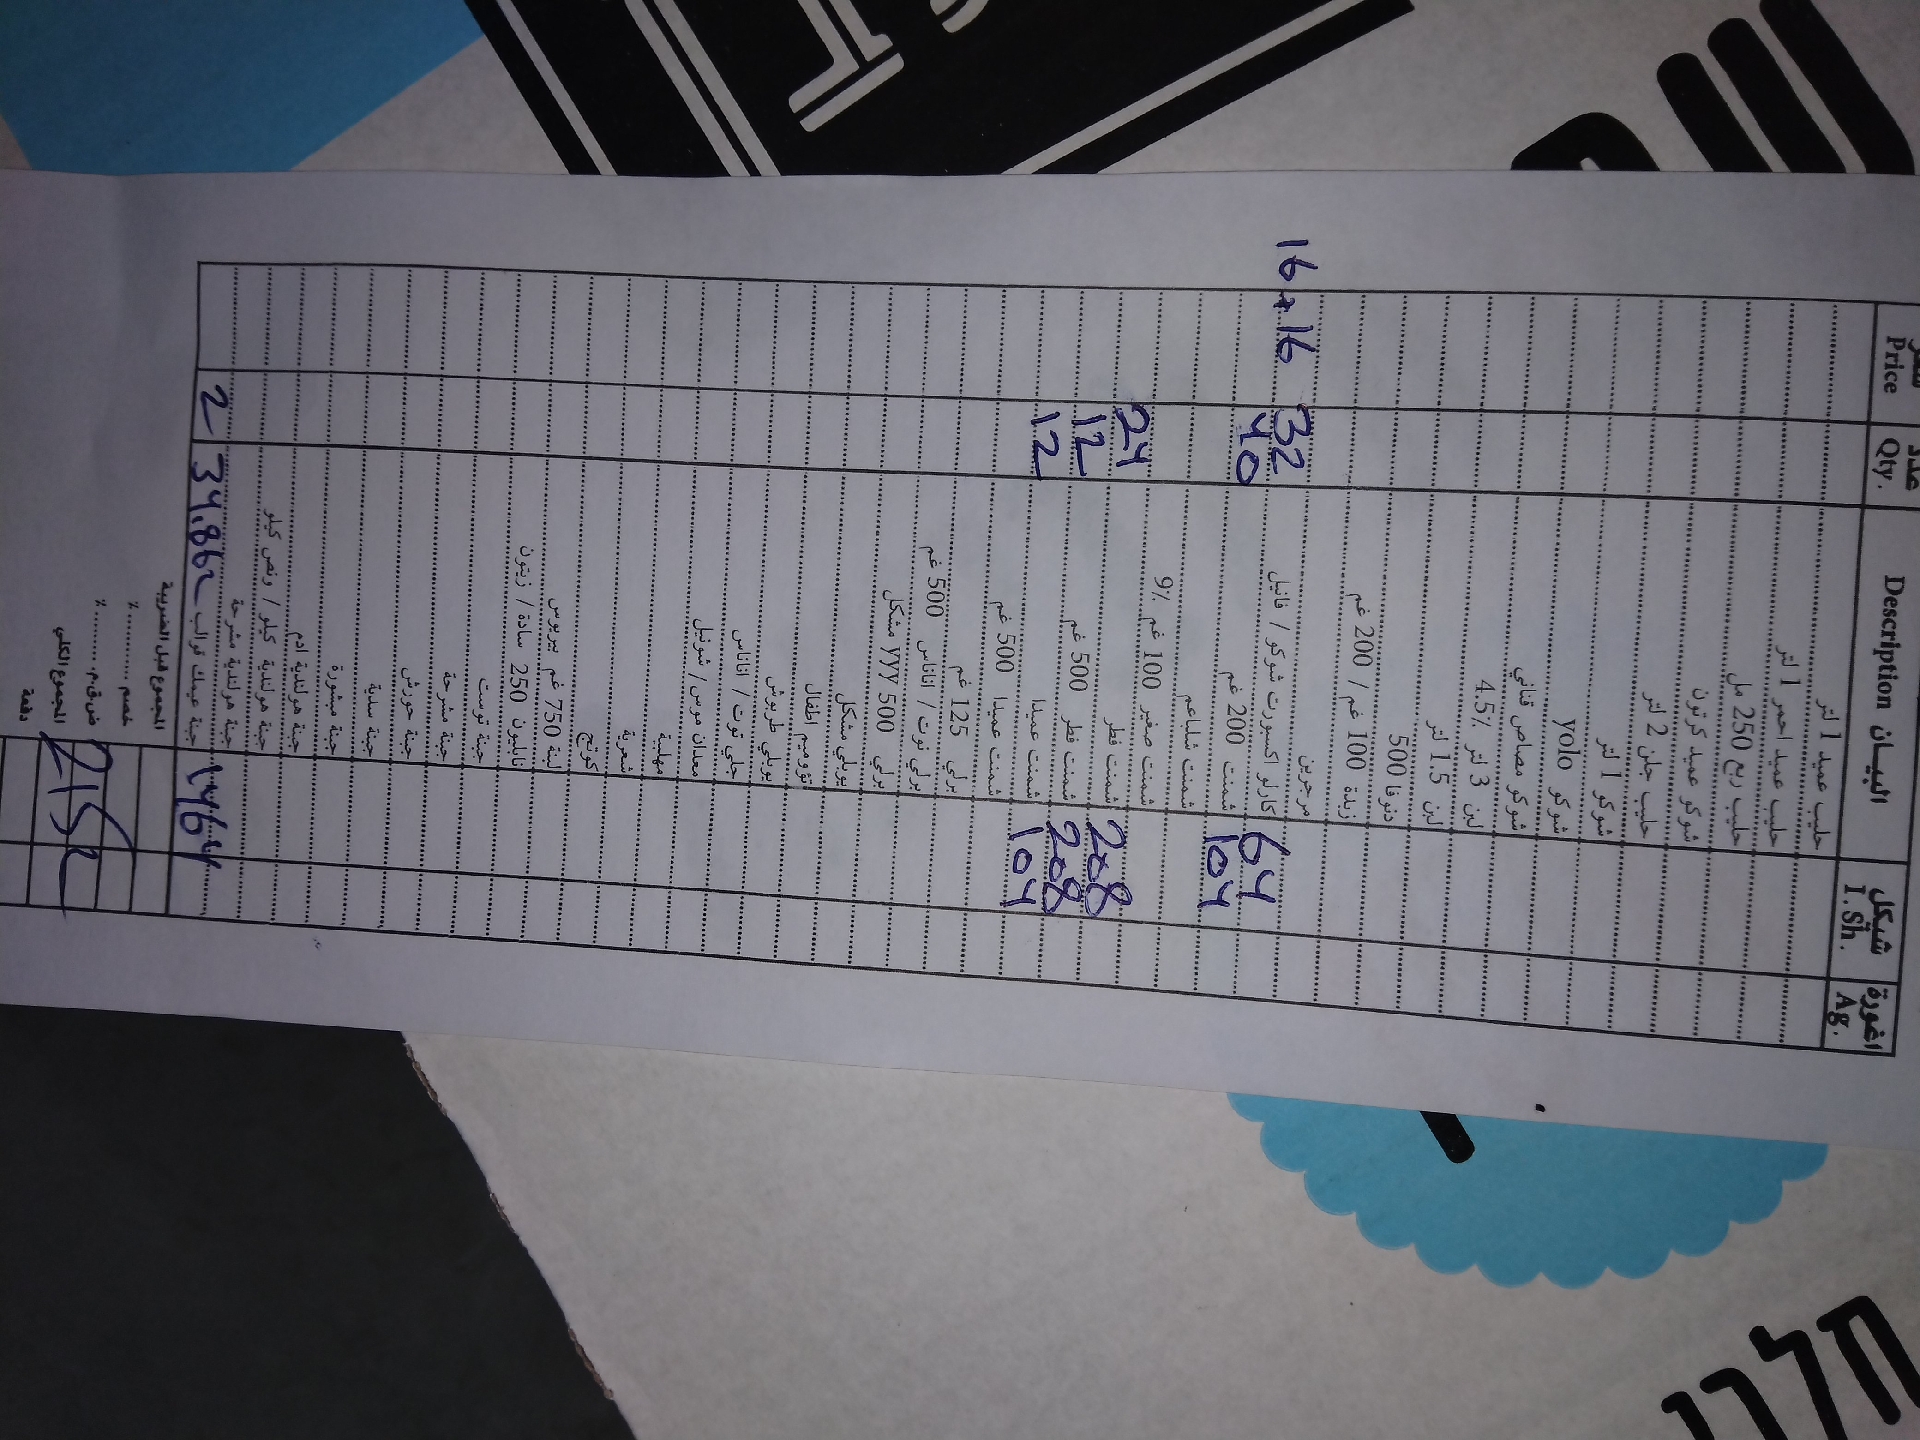 سعر عدد البيـــان شيكل اغورة
Price Qty. Description I.Sh. Ag.
حليب عميد 1 لتر
حليب عميد احمر 1 لتر
حليب ربع 250 مل
شوكو عميد كرتون
حليب جلن 2 لتر
شوكو 1 لتر
شوكو yolo
شوكو مصاص قناني
لبن 3 لتر 4.5%
لبن 1.5 لتر
دنوفا 500
زبدة 100 غم / 200 غم
مرجرين
16+16 32 كارلو اكسبورت شوكو / فانيل 64
40 شمنت 200 غم 104
شمنت شلباعم
شمنت صغير 100 غم 9%
24 شمنت فطر 208
12 شمنت فطر 500 غم 208
12 شمنت عميدا 104
شمنت عميدا 500 غم
برلي 125 غم
برلي توت / اناناس 500 غم
برلي 500 yyy مشكل
يوبلي مشكل
تزوميم اطفال
يوبلي طربوش
جلي توت / اناناس
معدان موس / شونيل
مهلبية
شعرية
كوتج
لبنة 750 غم بيريوس
نابليون 250 سادة / زيتون
جبنة توست
جبنة مشرحة
جبنة حورش
جبنة سدية
جبنة مبشورة
جبنة هولندية ادم
جبنة هولندية كيلو / ونص كيلو
جبنة هولندية مشرحة
2 34.862 جبنة عيمك قوالب 1464
المجموع قبل الضريبة
خصم ..........%
ض.ق.م ..........%
المجموع الكلي 2152
دفعة
חלבי